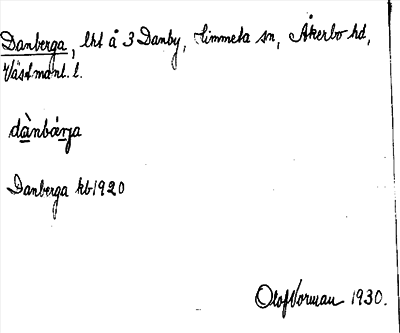 Danberga, lht å 3 Danby, Himmeta sn, Åkerbo hd,
Västmanl. l.
dànbärja
Danberga kb 1920
Olof Vorman 1930.